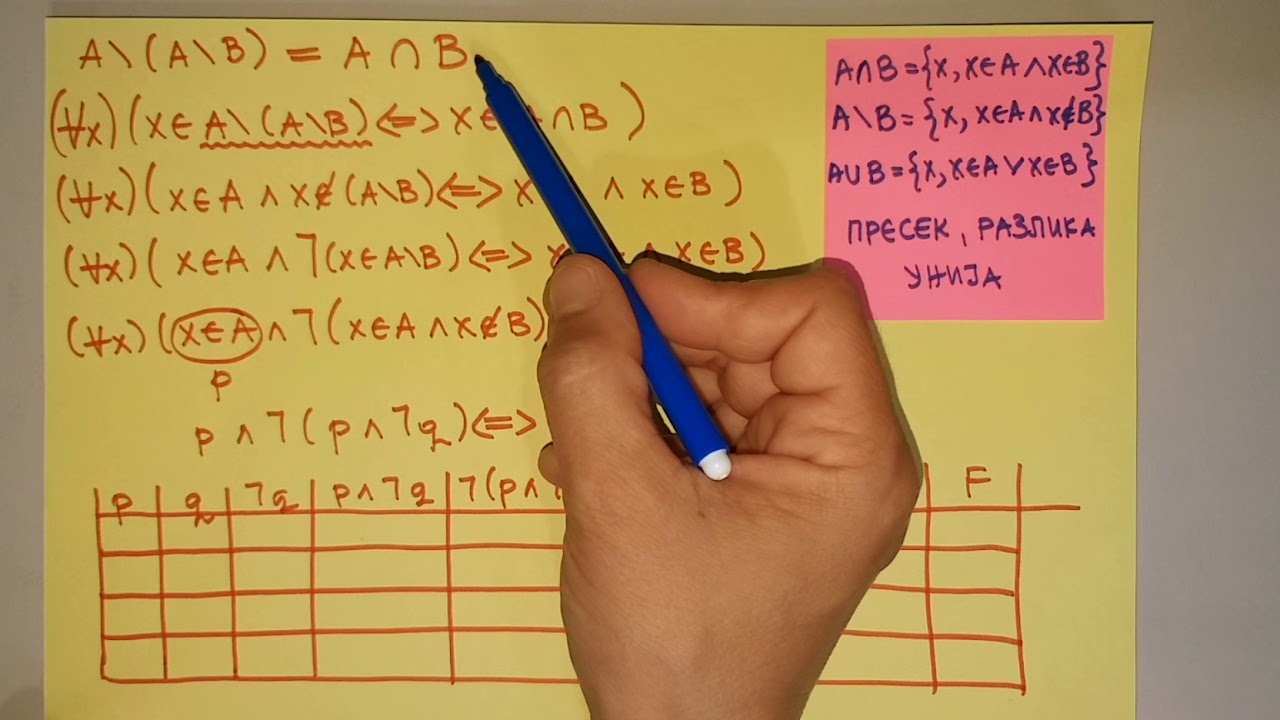 A\(A\B) = A∩B
(∀x)(x∈A\(A\B)⇔x∈A∩B)
(∀x)(x∈A∧x∉(A\B)⇔x ∧x∈B)
(∀x)(x∈A∧¬(x∈A\B)⇔x ∧x∈B)
(∀x)(x∈A∧¬(x∈A∧x∉B)
p
p∧¬(p∧¬q)⇔
p q ¬q p∧¬q ¬(p∧ F
A∩B={x, x∈A∧x∈B}
A\B={x, x∈A∧x∉B}
A∪B={x, x∈A∨x∈B}
ПРЕСЕК, РАЗЛИКА
УНИЈА